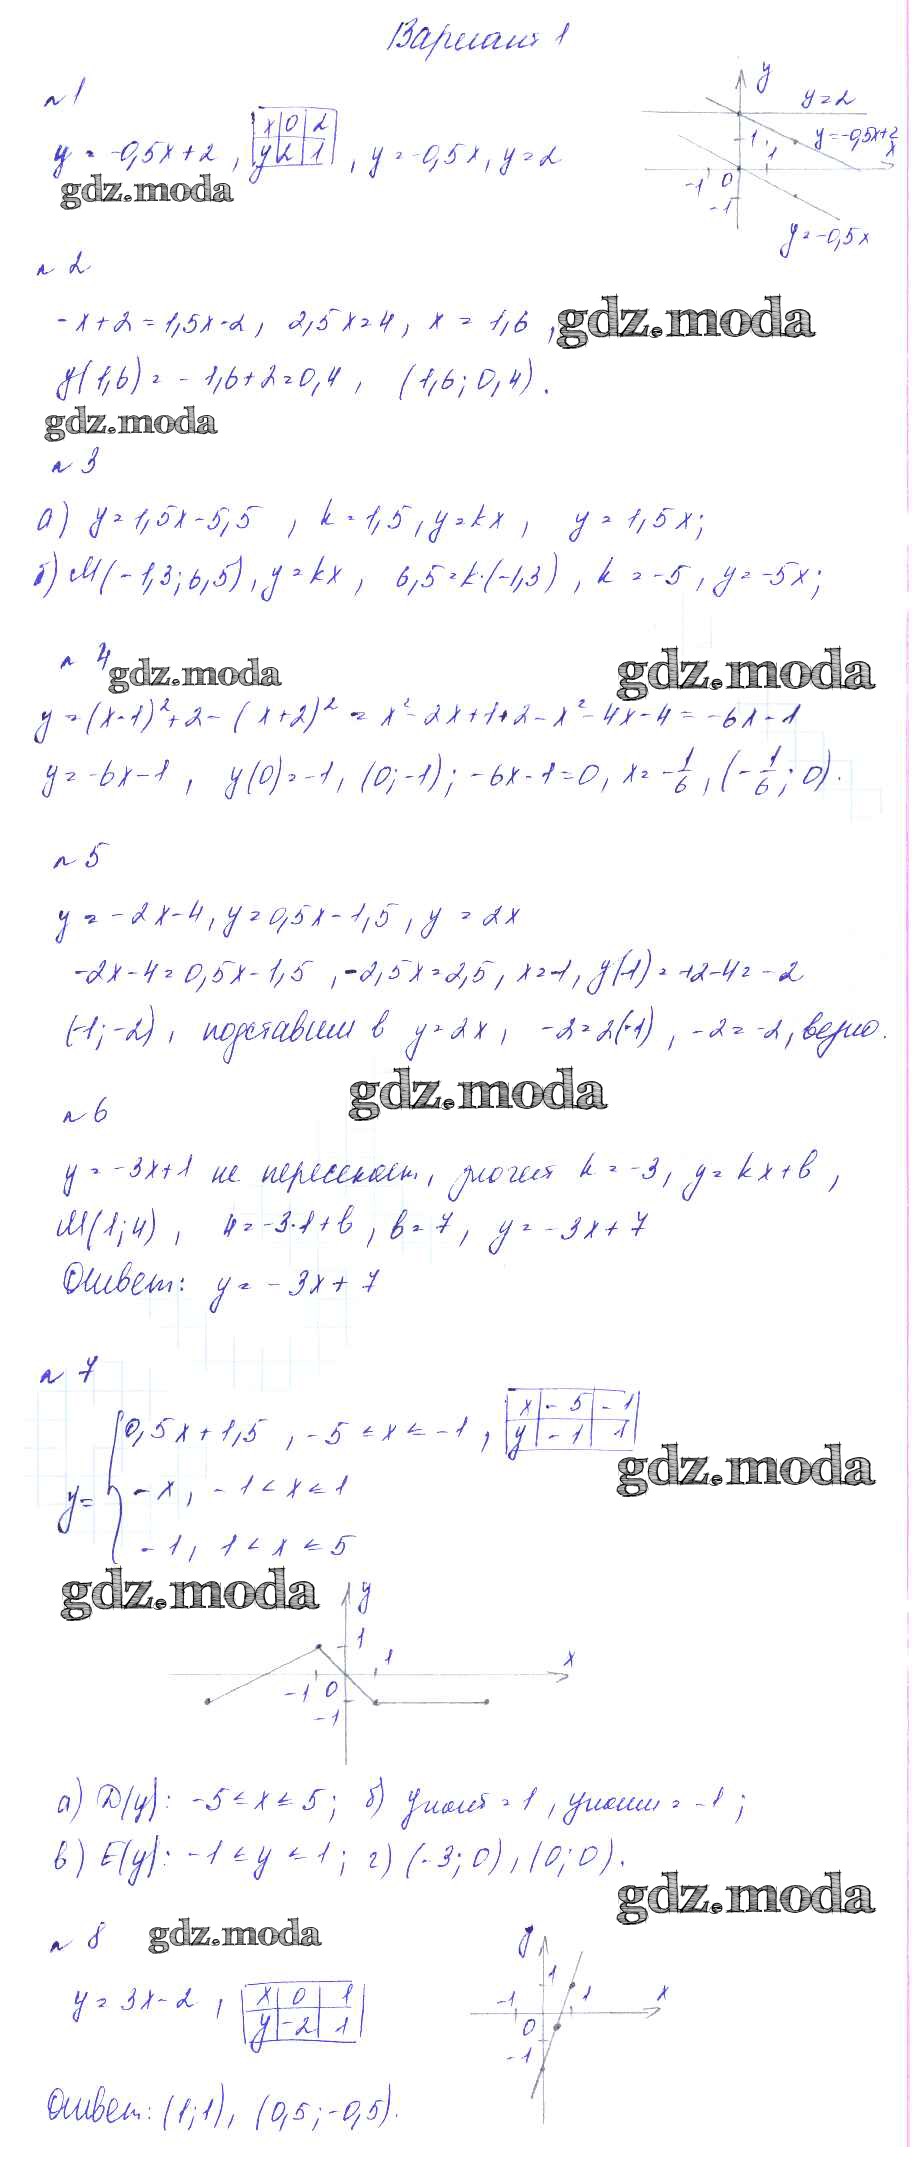 Вариант 1
n 1
y = -0,5x+2 , x 0 2 y 2 1 , y = -0,5x, y=2
gdz.moda
y y=2
1 1 y=-0,5x+2
x
-1 0
-1
y=-0,5x
n 2
-x+2=1,5x-2, 2,5x=4, x = 1,6 , gdz.moda
y(1,6) = -1,6+2=0,4 , (1,6; 0,4).
gdz.moda
n 3
а) y=1,5x-5,5 , k=1,5, y=kx, y=1,5x;
б) M(-1,3;6,5), y=kx, 6,5=k·(-1,3), k=-5, y=-5x;
n 4 gdz.moda gdz.moda
y=(x-1)²+2-(x+2)² = x²-2x+1+2-x²-4x-4=-6x-1
y=-6x-1 , y(0)=-1, (0;-1); -6x-1=0, x=-1/6, (-1/6; 0).
n 5
y = -2x-4, y=0,5x-1,5, y = 2x
-2x-4=0,5x-1,5 , -2,5x=2,5, x=-1, y(-1)=+2-4=-2
(-1;-2), подставим в y=2x, -2=2(-1), -2=-2, верно.
gdz.moda
n 6
y=-3x+1 не пересекает, значит k=-3, y=kx+b,
M(1;4), 4=-3·1+b, b=7, y=-3x+7
Ответ: y=-3x+7
n 7
0,5x+1,5 , -5≤x≤-1, x -5 -1 y -1 1
gdz.moda
y= -x, -1<x≤1
-1, 1<x≤5
gdz.moda
y
1 1 x
-1 0
-1
а) D(y): -5≤x≤5; б) yнаиб=1, yнаим=-1;
в) E(y): -1≤y≤1; г) (-3;0), (0;0).
gdz.moda
n 8 gdz.moda
y=3x-2, x 0 1 y -2 1
y
1 1 x
-1 0
-1
Ответ: (1;1), (0,5;-0,5).